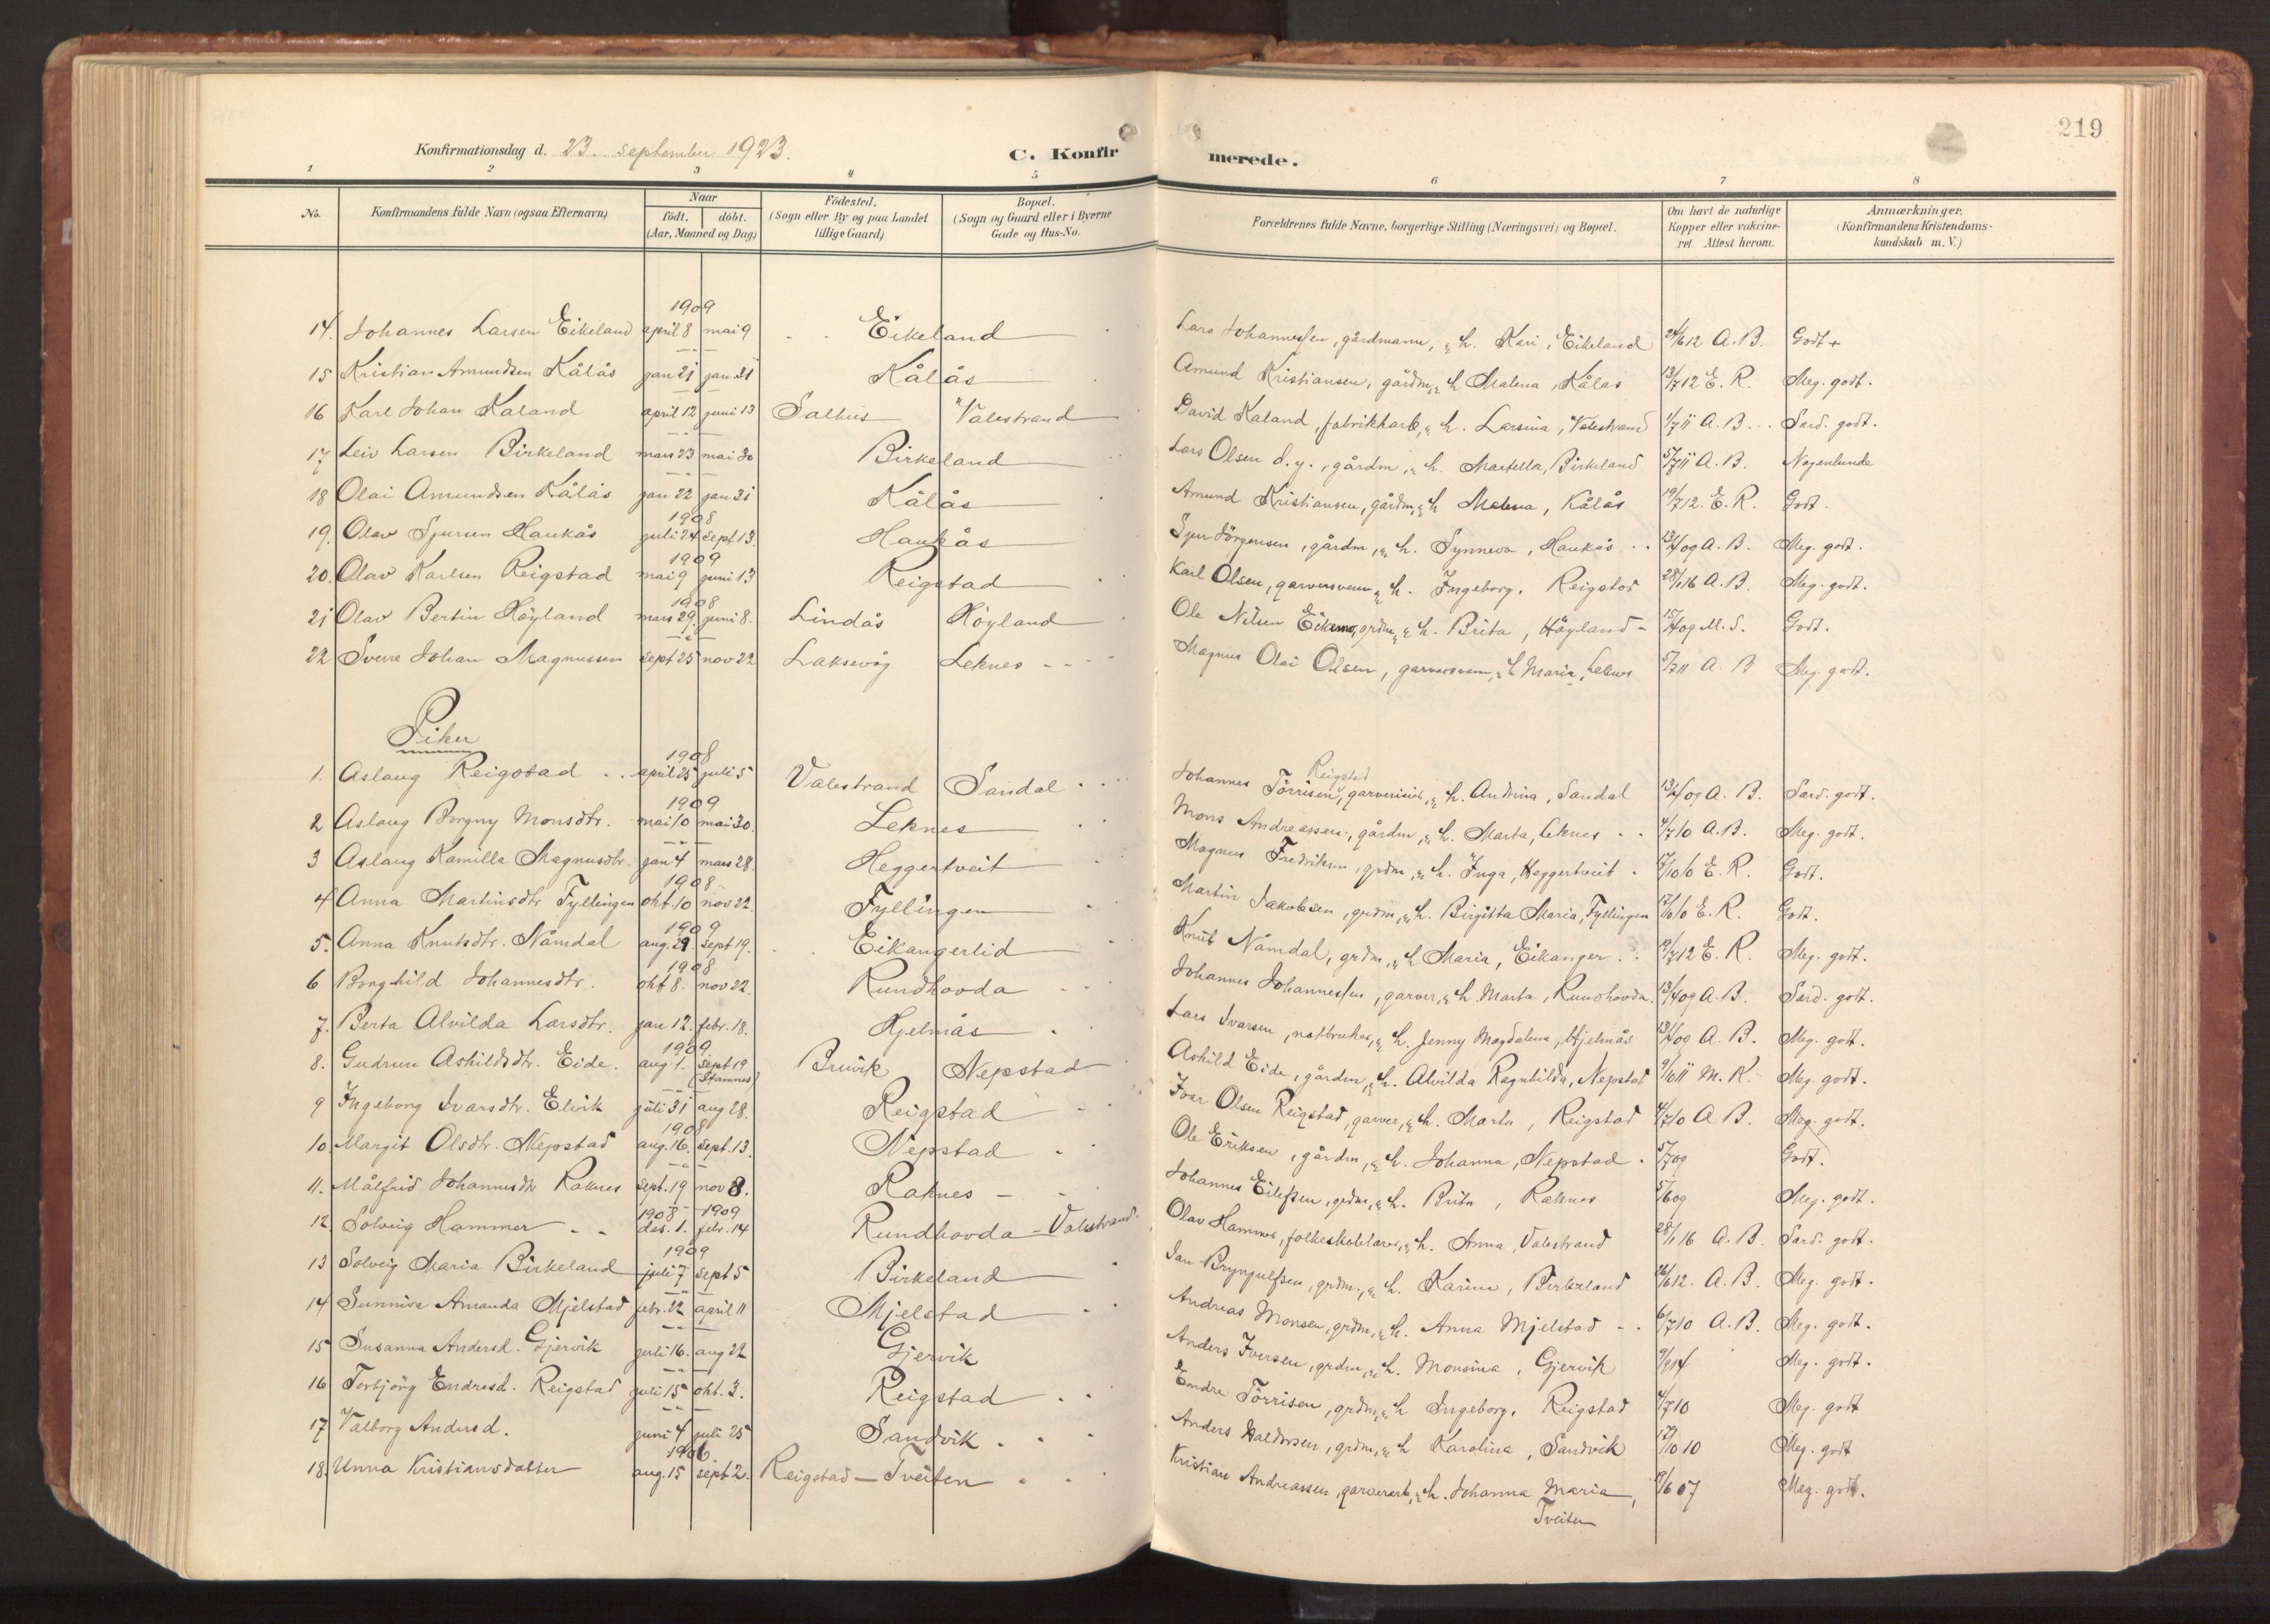 219
Konfirmationsdag d. 23. september 1923.
C. Konfirmerede.
1 2 3 4 5 6 7 8
No.
Konfirmandens fulde Navn (ogsaa Efternavn)
Naar
født. døbt.
(Aar, Maaned og Dag)
Fødested.
(Sogn eller By og paa Landet
tillige Gaard)
Bopæl.
(Sogn og Gaard eller i Byerne
Gade og Hus-No.
Forældrenes fulde Navne, borgerlige Stilling (Næringsvei) og Bopæl.
Om havt de naturlige
Kopper eller vakcine-
ret. Attest herom.
Anmærkninger.
(Konfirmandens Kristendoms-
kundskab m. V.)
1909
14. Johannes Larsen Eikeland april 8 mai 9 Eikeland Lars Johannessen, gårdmann, & h. Kari, Eikeland 24/6 12 A.B. Godt +
15 Kristian Amundsen Kålås jan 21 jan 31 Kålås Amund Kristiansen, gårdm, & h Malena, Kålås 13/7 12 E. R. Meg. godt.
16 Karl Johan Kaland april 12 juni 13 Salhus Valestrand David Kaland, fabrikkarb, & h. Larsina, Valestrand 1/7 11 A.B. Særd. godt.
17 Leiv Larsen Birkeland mars 23 mai 30 Birkeland Lars Olsen d.y., gårdm, & h. Birkeland 5/7 11 A.B. Nogenlunde
18 Olai Amundsen Kålås jan 22 jan 31 Kålås Amund Kristiansen, gårdm, & h Malena, Kålås 19/7 12. E. R. Godt.
1908
19. Olav Sjursen Haukås juli 24 sept 13. Haukås Sjur Jörgensen, gårdm, & h. Synneva, Haukås 13/4 09 A. B. Meg. godt.
1909
20. Olav Karlsen Reigstad mai 9 juni 13 Reigstad Karl Olsen, garversvenn & h. Ingeborg, Reigstad 28/1 16 A. B. Meg. godt.
1908
21 Olav Bertin Höyland mars 29. juni 8. Lindås Höyland Ole Nilsen grdm, & h. Brita, Höyland 15/4 09 M. S. Godt.
22 Sverre Johan Magnussen sept 25 nov 22 Laksevåg Leknes Magnus Olai Olsen, garversvenn, & h Maria, Leknes 5/7 11 A. B Meg. godt.
Piker
1908
1. Aslaug Reigstad april 25 juli 5 Valestrand Sandal Johannes Törrisen Reigstad, & h. Andrina, Sandal 13/4 09 A. B. Særd. godt.
1909
2 Aslaug Borgny Monsdtr. mai 10 mai 30. Leknes Mons Andreassen, gårdm, & h. Marta, Leknes 4/7 10 A.B. Meg. godt.
3 Aslaug Kamilla Magnusdtr. jan 4 mars 28. Heggertveit Magnus Fredriksen, grdm, & h. Inga, Heggertveit 17/10 10 E. R. Godt.
1908
4 Anna Martinsdtr Fyllingen okt. 10 nov 22. Fyllingen Martin Jakobsen, grdm, & h. Birgitta Maria, Fyllingen 17/10 10 E. R. Godt.
1909
5. Anna Knutsdtr. Nåmdal aug. 29. sept 19. Eikangerlid Knut Nåmdal, grdm, & h Maria, Eikanger 19/7 12 E. R. Meg. godt.
1908
6 Borghild Johannesdtr. okt 8. nov 22. Rundhovda Johannes Johannessen, garver, & h. Marta, Rundhovda. 13/4 09 A. B. Særd. godt.
7. Berta Alvilda Larsdtr. jan 12. febr. 18. Hjelmås Lars Ivarsen, notbruker, & h. Jenny Magdalena, Hjelmås 13/4 09 A. B. Meg. godt.
1909
8. Gudrun Askildsdtr. Eide. aug 1. sept 19 (Stamnes) Bruvik Nepstad Askild Eide, gårdm, & h. Alvilda Ragnhilda, Nepstad 9/6 11 M. K. Meg. godt.
9 Ingeborg Ivarsdtr. Elvik juli 31 aug 28. Reigstad Ivar Olsen Reigstad, garver, & h. Marta, Reigstad 4/7 10 A B. Meg. godt.
1908
10. Margit Olsdtr. Nepstad aug. 16. sept. 13. Nepstad Ole Eriksen, gårdm, & h. Johanna, Nepstad. 5/7 09 Godt.
11. Målfrid Johannesdtr Raknes sept. 19 nov 8. Raknes Johannes Eilefsen, grdm, & h. Brita, Raknes 5/6 09 Meg. godt.
1908 1909
12. Solveig Hammer des. 1. febr. 14 Rundhovda - Valestrand. Olav Hammer, folkeskolelærer, & h. Anna, Valestrand 28/1 16 A. B. Særd. godt.
1909
13 Solveig Maria Birkeland juli 7 sept 5 Birkeland Jan Brynjulfsen, grdm., & h. Karina, Birkeland 26/6 12. A. B. Meg. godt.
14 Sunniva Amanda Mjelstad febr. 22 april 11 Mjelstad Andreas Monsen, grdm, & h. Anna Mjelstad 6/7 10 A. B. Meg. godt.
15 Susanna Andersd. Gjervik juli 16. aug 22 Gjervik Anders Iversen, grdm, & h. Monsina, Gjervik 9/9 14 Meg. godt.
16 Torbjörg Endresd. Reigstad juli 15 okt. 3. Reigstad Endre Törrisen, grdm, & h Ingeborg, Reigstad 4/7 10 Meg. godt
17 Valborg Andersd. juni 4 juli 25 Sandvik Anders Haldorsen, grdm, & h Karolina, Sandvik 17/10 10 Meg. godt
1906.
18. Unna Kristiansdatter aug. 15 sept 2. Reigstad - Tveiten Kristian Andreassen, garverarb, & h. Johanna Maria, 9/6 07 Meg. godt.
Tveiten